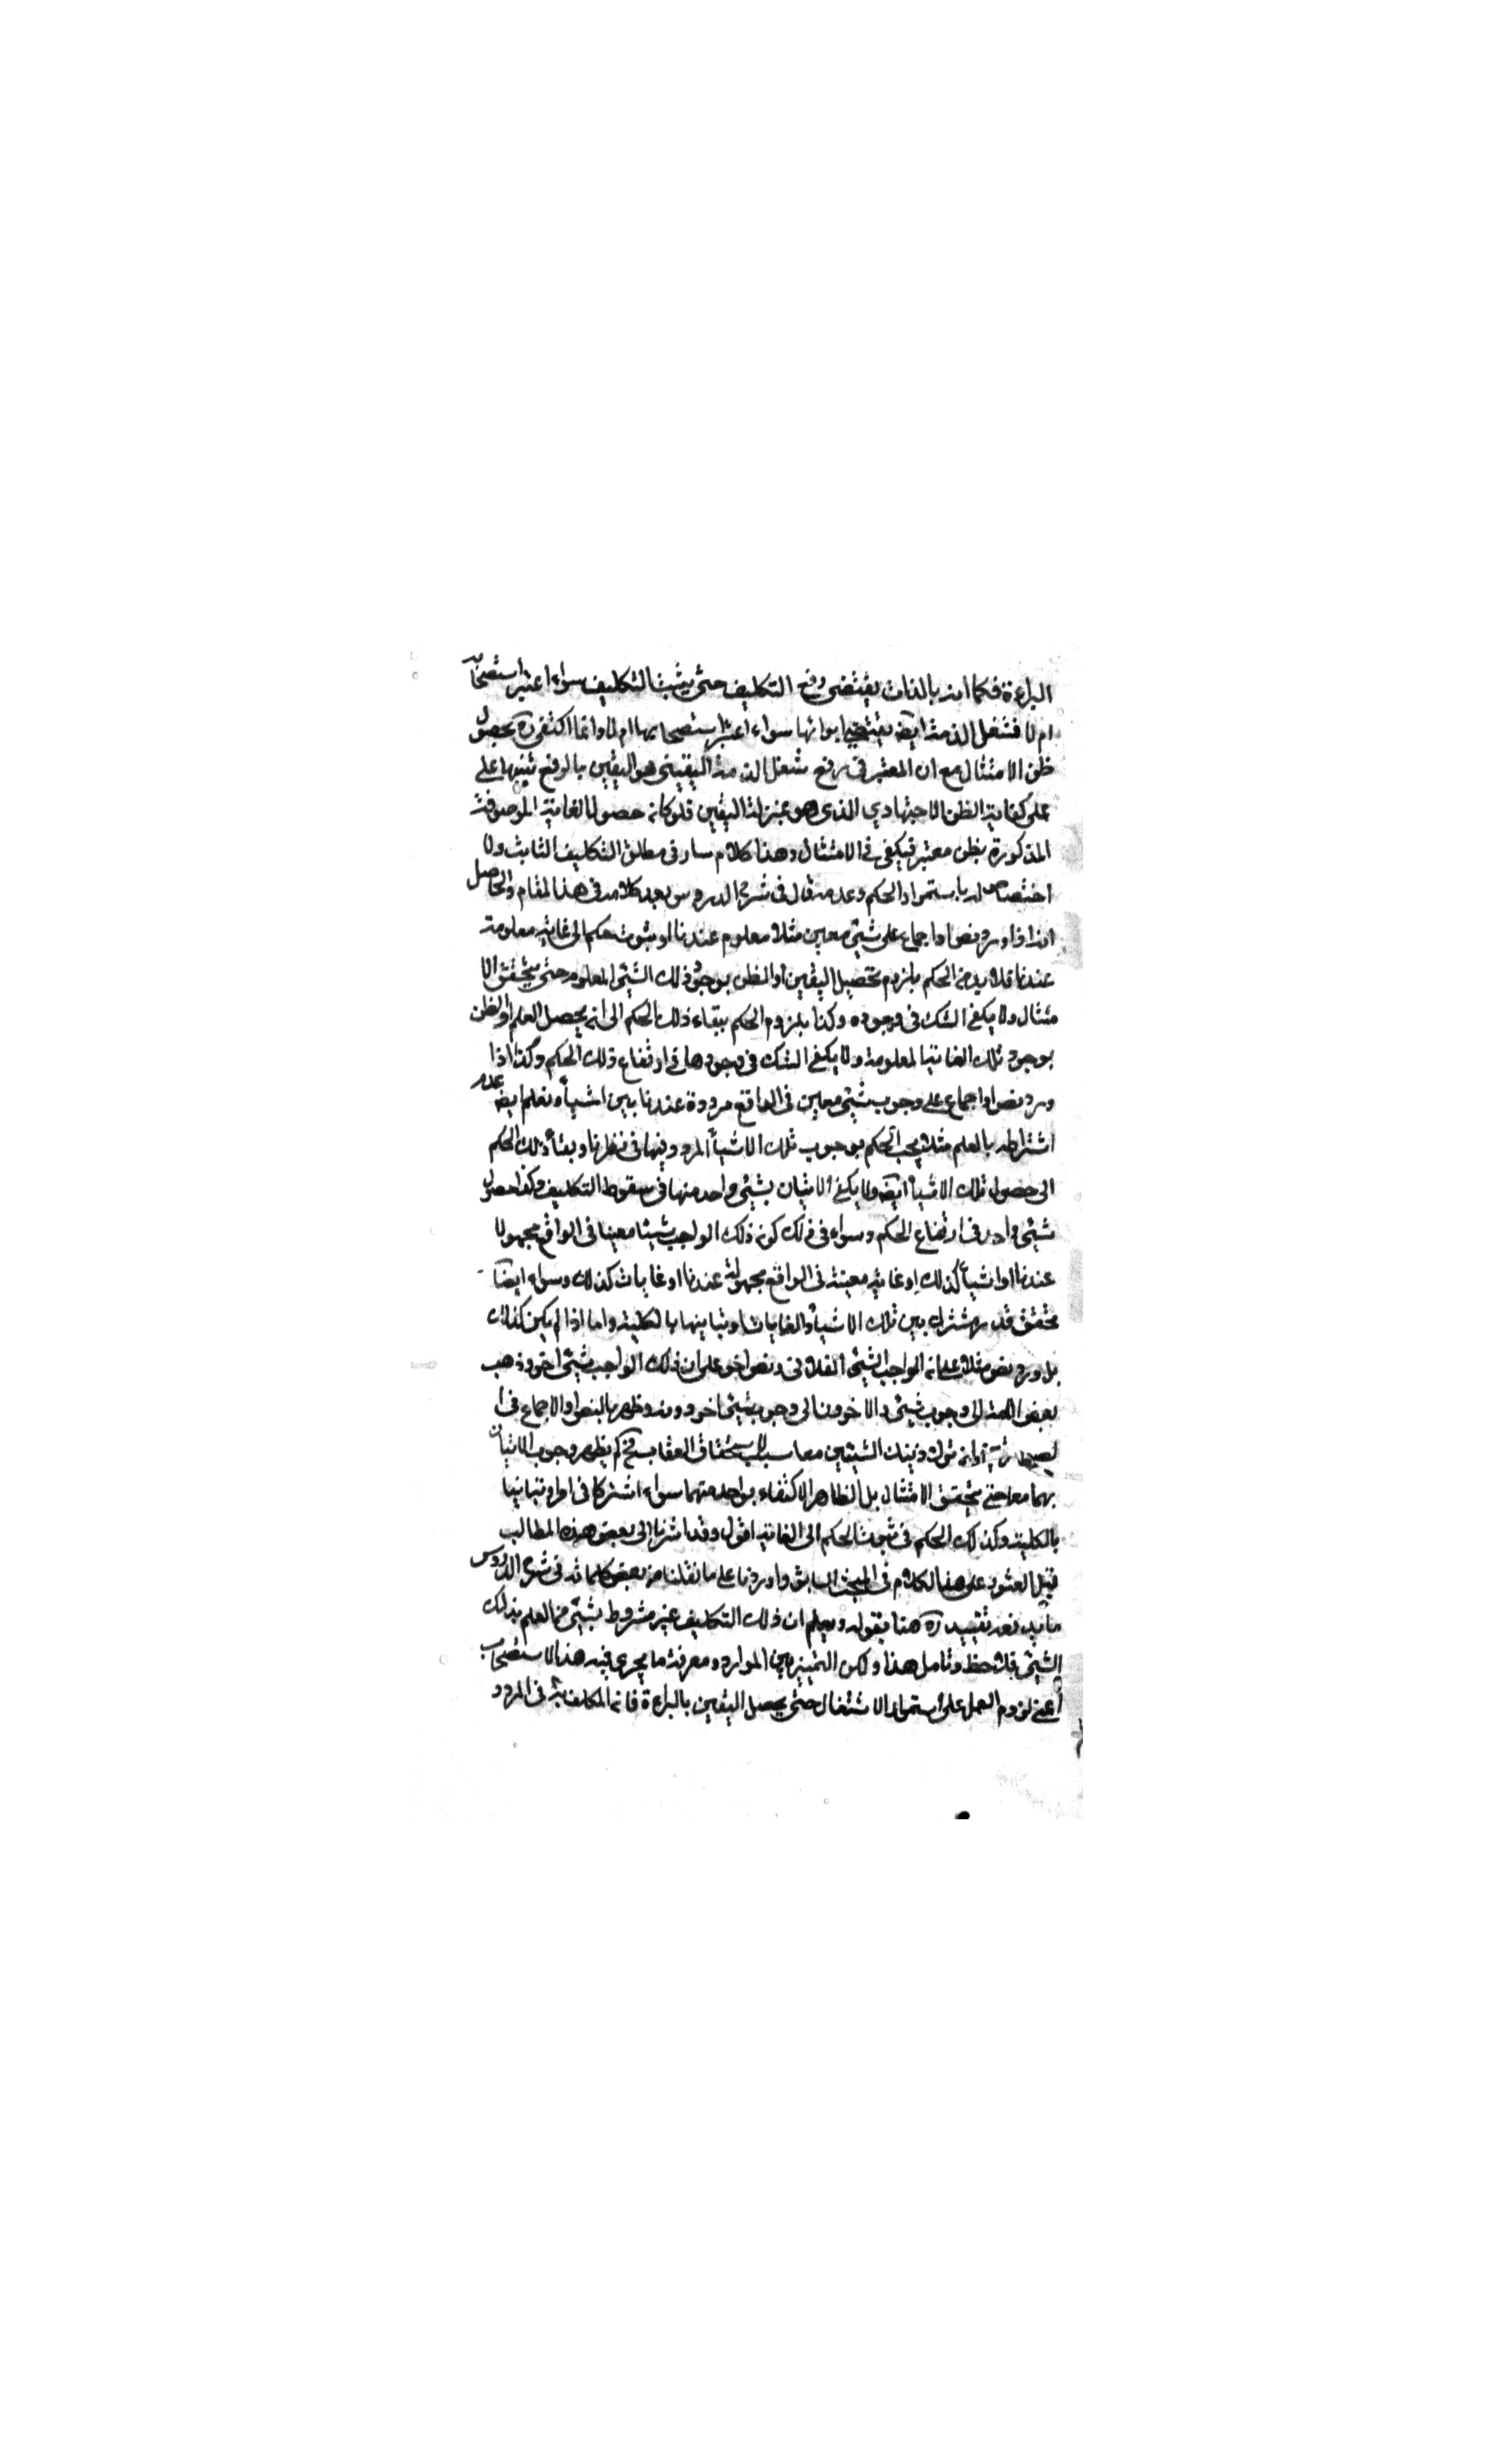 البراءة فكما انه بالذات يقتضى رفع التكليف حتى يثبت التكليف سواء اعتبر استصحابه
ام لا فشغل الذمة ايضه يقتضي ابرائها سواء اعتبر استصحابها ام لا وانما اكتفى ره بحصول
ظن الامتثال مع ان المعتبر فى رفع شغل الذمة اليقينى هو اليقين بالرفع تنبيها على
على كفاية الظن الاجتهادي الذى هو بمنزلة اليقين فلو كان حصول الغاية الموصوفة
المذكورة بظن معتبر فيكفى فى الامتثال وهذا كلام سار فى مطلق التكليف الثابت ولا
اختصاص له باستمرار الحكم وعدمه قال فى شرح الدروس بعد كلامه فى هذا المقام والحاصل
انه اذا ورد نص او اجماع على شيئ معين مثلا معلوم عندنا او ثبوت حكم الى غاية معلومة
عندنا فلا بد من الحكم بلزوم تحصيل اليقين او الظن بوجود ذلك الشيئ المعلوم حتى يتحقق الا
متثال ولا يكفى الشك فى وجوده وكذا يلزم الحكم ببقاء ذلك الحكم الى ان يحصل العلم او الظن
بوجود تلك الغاية المعلومة ولا يكفى الشك فى وجودها فى ارتفاع ذلك الحكم وكذا اذا
ورد نص او اجماع على وجوب شيئ معين فى الواقع مردودة عندنا بين اشياء ونعلم ايضه عدم
اشتراطه بالعلم مثلا يجب الحكم بوجوب تلك الاشياء المردد فيها فى نظرنا وبقاء ذلك الحكم
الى حصول تلك الاشياء ايضه ولا يكفى الاتيان بشيئ واحد منها فى سقوط التكليف وكذا حصول
شيئ واحد فى ارتفاع الحكم وسواء فى ذلك كون ذلك الواجب شيئا معينا فى الواقع مجهولا
عندنا او اشياء كذلك او غاية معينة فى الواقع مجهولة عندنا او غايات كذلك وسواء ايضا
تحقق قدر مشترك بين تلك الاشياء والغايات او تباينها بالكلية واما اذا لم يكن كذلك
بل ورد نص مثلا على ان الواجب الشيئ الفلانى ونص اخر على ان ذلك الواجب شيئ اخر وذهب
بعض الامة الى وجوب شيئ والاخرون الى وجوب شيئ اخر دونه وظهر بالنص او الاجماع فى ا
ان ترك ذينك الشيئين معا سبب لاستحقاق العقاب فح لم يظهر وجوب الاتيان
بهما معا حتى يتحقق الامتثال بل الظاهر الاكتفاء بواحد منهما سواء اشتركا فى امر او تباينا
بالكلية وكذلك الحكم فى ثبوت الحكم الى الغاية اقول وقد اشرنا الى بعض هذه المطالب
قبل العثور على هذا الكلام فى المبحث السابق واوردنا على ما نقلنا من بعض كلماته فى شرح الدروس
ما يدفعه تقييده ره هنا بقوله ويعلم ان ذلك التكليف غير مشروط بشيئ من العلم بذلك
الشيئ فلاحظ وتامل هذا ولكن التمييز بين الموارد ومعرفة ما يجرى فيه هذا الاستصحاب
اعنى لزوم العمل على استمرار الاشتغال حتى يحصل اليقين بالبراءة فان المكلف به فى المردد